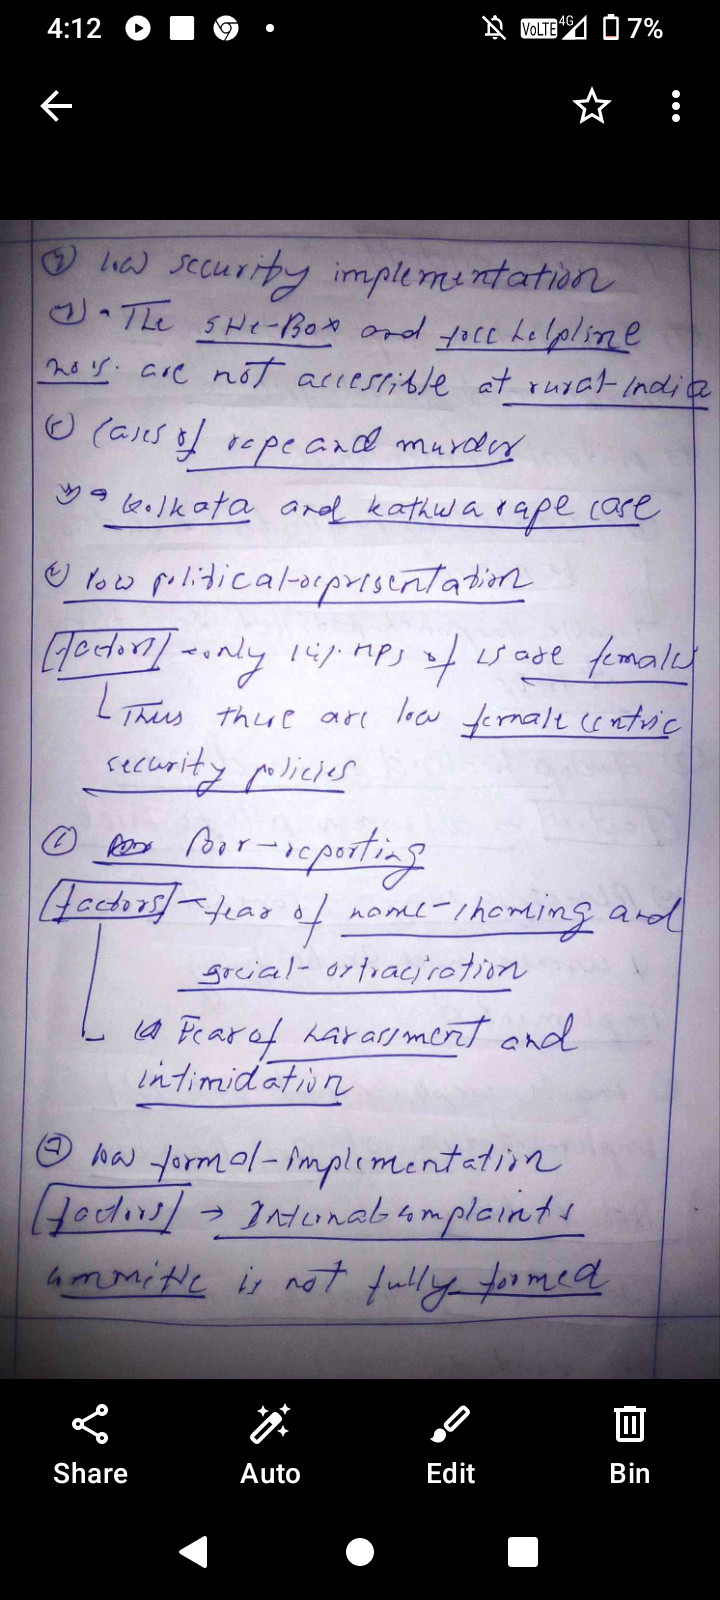 4:12
VoLTE 4G 7%
④ low security implementation
The SHe-Box and free helpline
no's. are not accessible at rural-India
Cases of rape and murder
Kolkata and kathua rape case
low political-representation
[factors] - only 14% MPs of LS are females
Thus there are low female centric
security policies
Poor-reporting
[factors] - fear of name-shaming and
social-ostracisation
Fear of harassment and
intimidation
low formal-implementation
[factors] → Internal complaints
committe is not fully formed
Share Auto Edit Bin